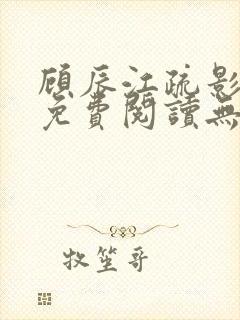 顾辰江疏影
免費閱讀無
牧笙哥